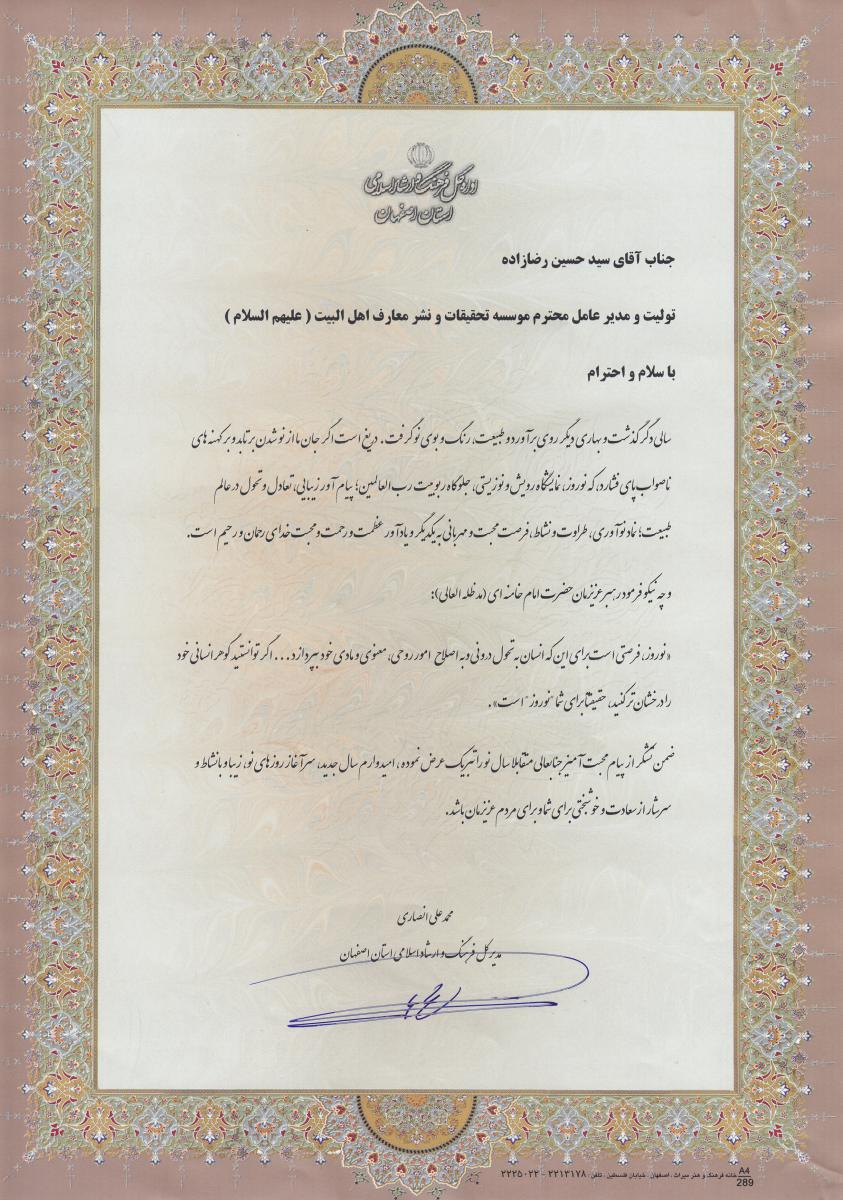 اداره کل فرهنگ و ارشاد اسلامی
استان اصفهان
جناب آقای سید حسین رضازاده
تولیت و مدیر عامل محترم موسسه تحقیقات و نشر معارف اهل البیت ( علیهم السلام )
با سلام و احترام
سالی دگر گذشت و بهاری دیگر روی برآورد و طبیعت، رنگ و بوی نو گرفت. دریغ است اگر جان ما از نو شدن برتابد و بر کهنه های
ناصواب پای فشارد، که نوروز، نمایشگاه رویش و نوزیستی، جلوگاه ربوبیت رب العالمین؛ پیام آور زیبایی، تعادل و تحول در عالم
طبیعت؛ نماد نوآوری، طراوت و نشاط، فرصت محبت و مهربانی به یکدیگر و یادآور عظمت و رحمت و محبت خدای رحمان و رحیم است.
و چه نیکو فرمود رهبر عزیزمان حضرت امام خامنه ای (مد ظله العالی):
«نوروز، فرصتی است برای این که انسان به تحول درونی و به اصلاح امور روحی، معنوی و مادی خود بپردازد... اگر توانستید گوهر انسانی خود
را درخشان تر کنید، حقیقتاً برای شما "نوروز" است».
ضمن تشکر از پیام محبت آمیز جنابعالی متقابلا سال نو را تبریک عرض نموده، امیدوارم سال جدید، سرآغاز روزهای نو، زیبا و بانشاط و
سرشار از سعادت و خوشبختی برای شما و برای مردم عزیزمان باشد.
محمد علی انصاری
مدیر کل فرهنگ و ارشاد اسلامی استان اصفهان
خانه فرهنگ و هنر میراث ، اصفهان ، خیابان فلسطین ، تلفن : ۲۲۱۳۱۷۸ - ۲۲۲۵۰۲۲
A4
289